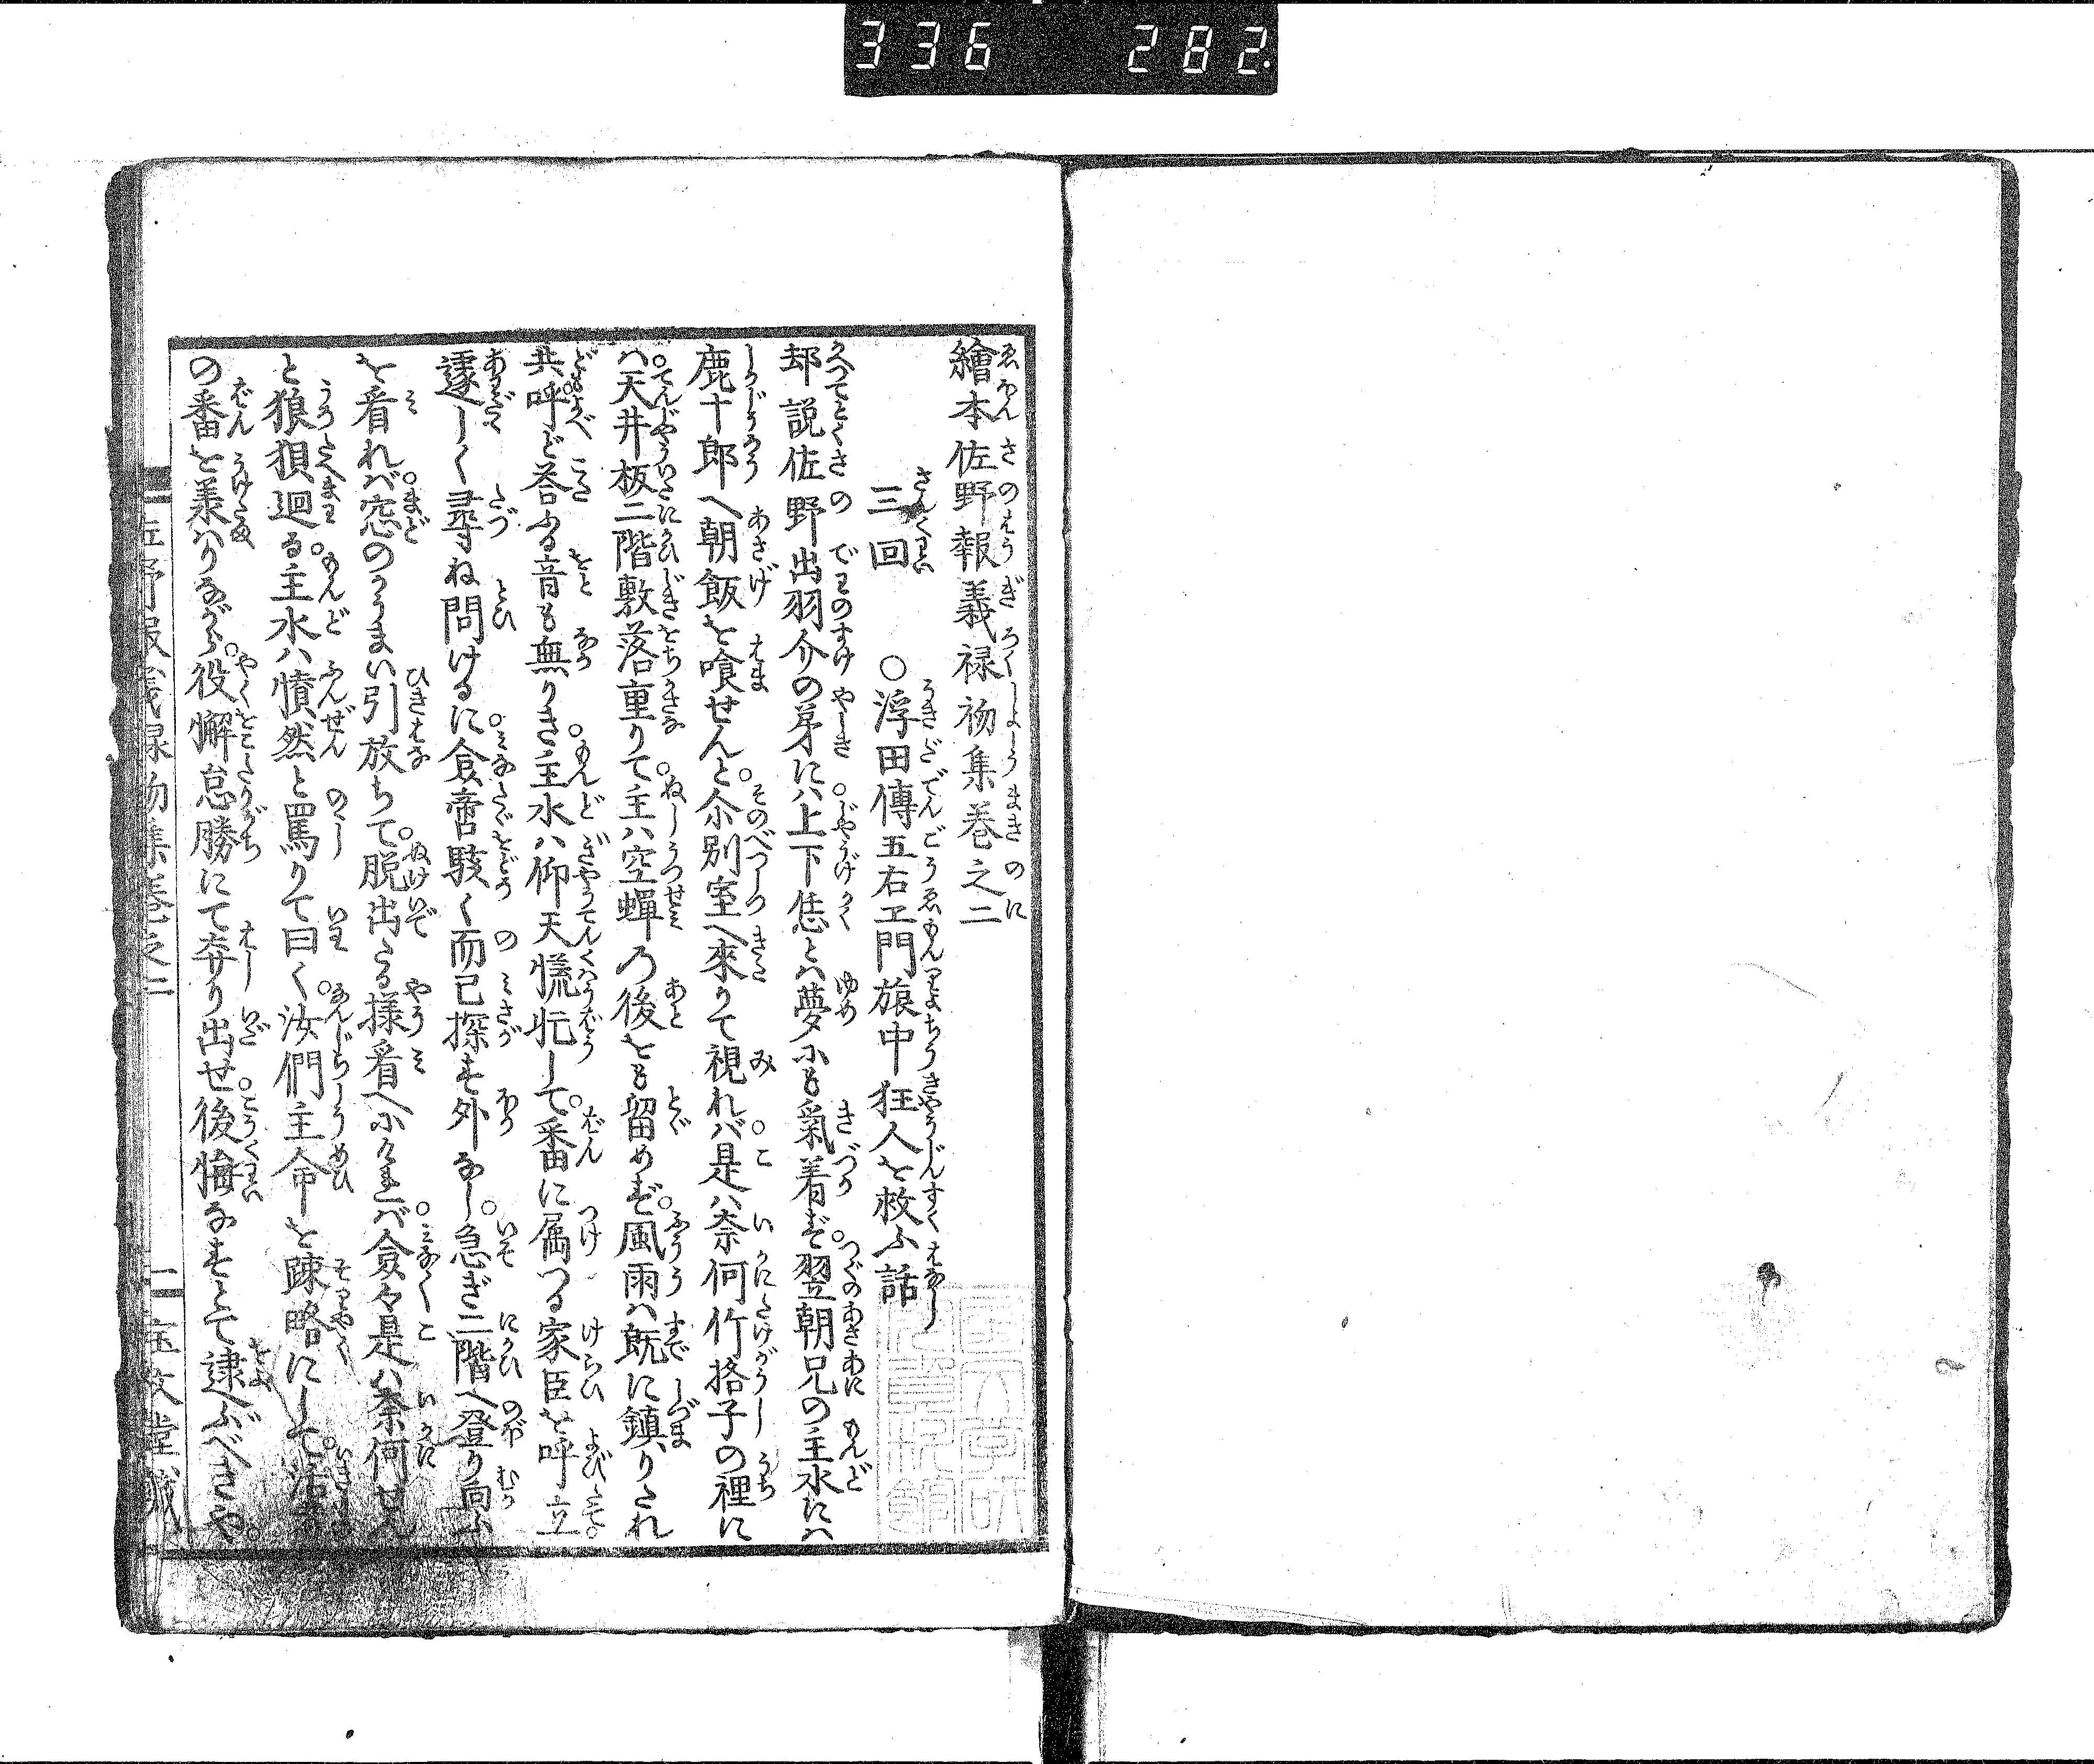 336 282
繪本佐野報義禄初集巻之二
三回 ○浮田傳五右エ門旅中狂人を救ふ話
却説佐野出羽介の弟には上下恁とは夢にも氣着ず。翌朝兄の主水には
鹿十郎へ朝飯を喰せんと。尒別室へ來りて視れば。是は奈何竹格子の裡に
は。天井板二階敷落重りて。主は空蝉の後をも留めず。風雨は既に鎮りたれ
共。呼ど荅ふる音も無りき。主水は仰天慌忙して。番に属つる家臣を呼立。
遽しく尋ね問けるに。僉啻駭く而已探す外なし。急ぎ二階へ登り向ふ
を看れば。窓のかうまい引放ちて。脱出たる様看へにければ。僉々是は奈何せん
と狼狽迴る。主水は憤然と罵りて曰く。汝們主命を踈略にして。
の番を羕はりながら。役懈怠勝にて奔り出せ。後悔なすとて逮ぶべきや。
佐野報義禄初集巻之二 一 宝文堂藏